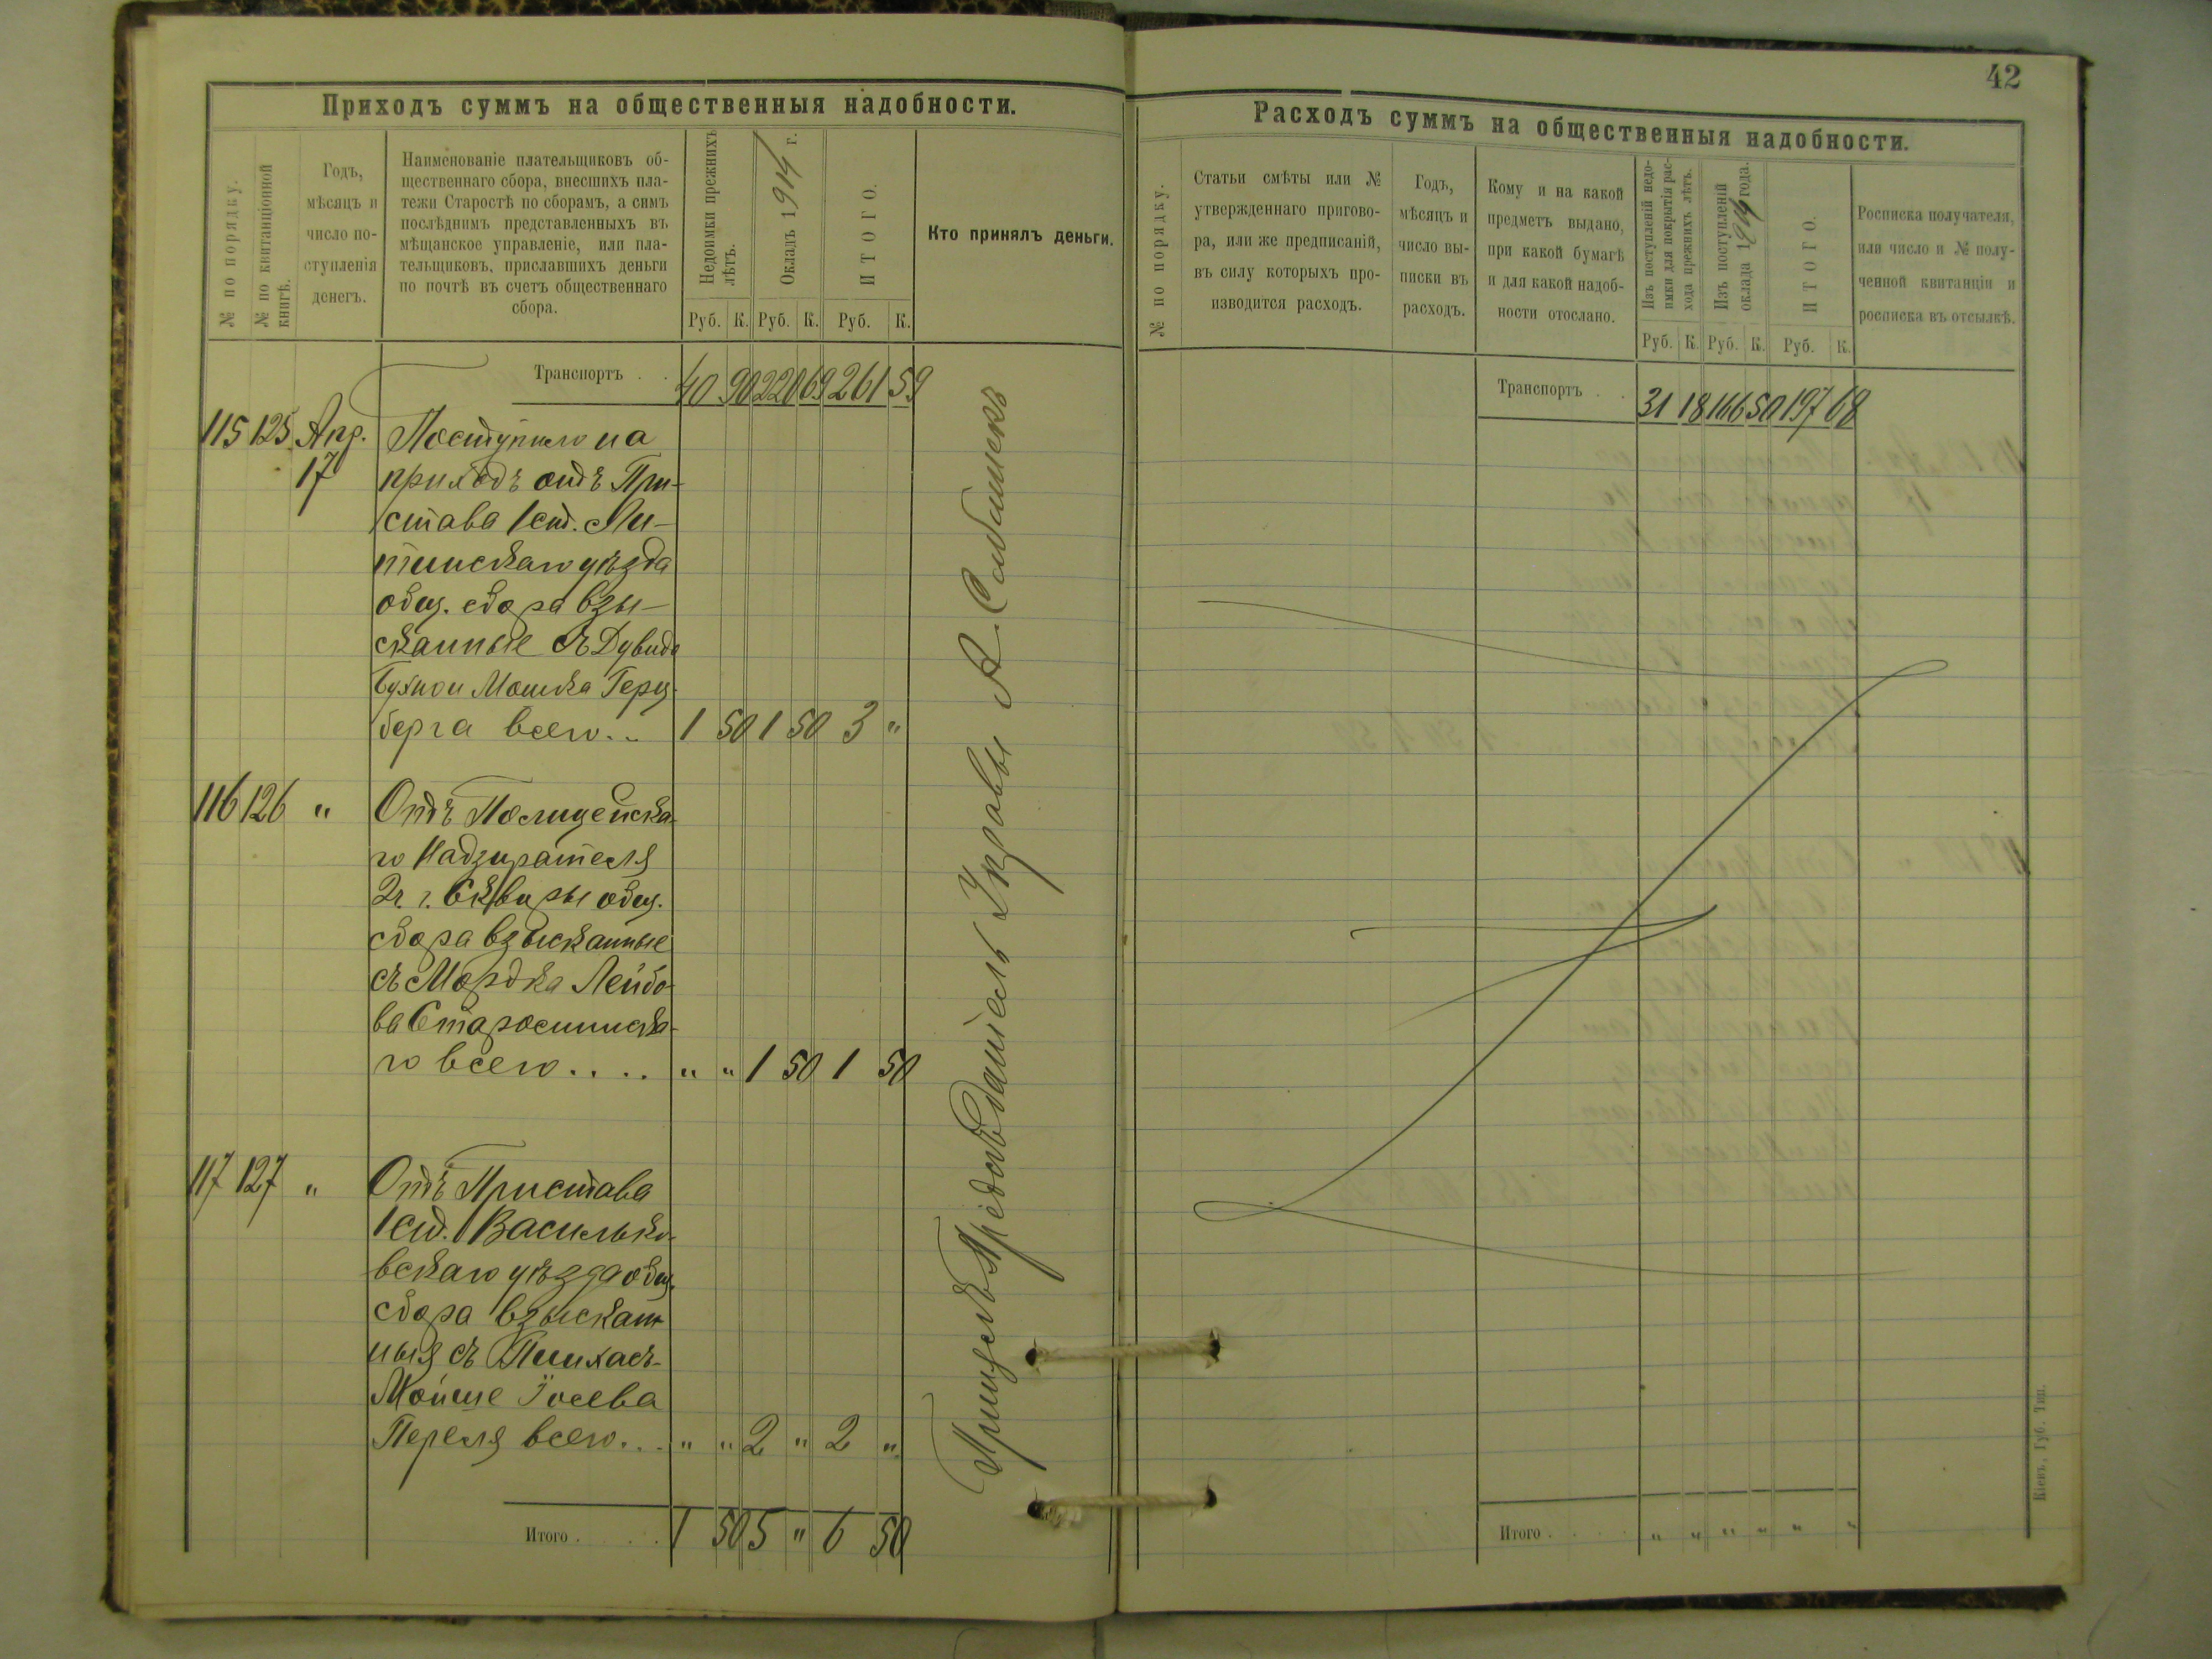 Приходъ суммъ на общественныя надобности.
№ по порядку.
№ по квитанціонной
книгѣ.
Годъ,
мѣсяцъ и
число по-
ступленія
денегъ.
Наименованіе плательщиковъ об-
щественнаго сбора, внесшихъ пла-
тежи Старостѣ по сборамъ, а симъ
послѣднимъ представленныхъ въ
мѣщанское управленіе, или пла-
тельщиковъ, приславшихъ деньги
по почтѣ въ счетъ общественнаго
сбора.
Недоимки прежнихъ
лѣтъ.
Окладъ 1914 г.
ИТОГО.
Руб. К. Руб. К. Руб. К.
Кто принялъ деньги.
Транспортъ . . 40 90 220 69 261 59
115 125 Апр. Поступило на
17 приходъ отъ При-
става 1 ст. Ли-
тинскаго уѣзда
общ. сбора взы-
сканные съ Дувида
Мошка Герц-
берга всего.. 1 50 1 50 3 "
116 126 " Отъ Полицейска-
го Надзирателя
2ч. г. Сквиры общ.
сбора взысканные
съ Мордка Лейбо-
ва Старосинска-
го всего.... " " 1 50 1 50
117 127 " Отъ Пристава
1 ст. Василько-
вскаго уѣзда общ.
сбора взыскан-
ныя съ Пинхасъ-
Мойше Іосева
Переля всего... " " 2 " 2 "
Итого . . . . 1 50 5 " 6 50
Предсѣдатель Управы А.
42
Расходъ суммъ на общественныя надобности.
№ по порядку.
Статьи смѣты или №
утвержденнаго пригово-
ра, или же предписаній,
въ силу которыхъ про-
изводится расходъ.
Годъ,
мѣсяцъ и
число вы-
писки въ
расходъ.
Кому и на какой
предметъ выдано,
при какой бумагѣ
и для какой надоб-
ности отослано.
Изъ поступленій недо-
имки для покрытія рас-
хода прежнихъ лѣтъ.
Изъ поступленій
оклада 1914 года.
ИТОГО.
Руб. К. Руб. К. Руб. К.
Росписка получателя,
или число и № полу-
ченной квитанціи и
росписка въ отсылкѣ.
Транспортъ . . 31 18 166 50 197 68
Итого . . . . " " " " " "
Кіевъ, Губ. Тип.